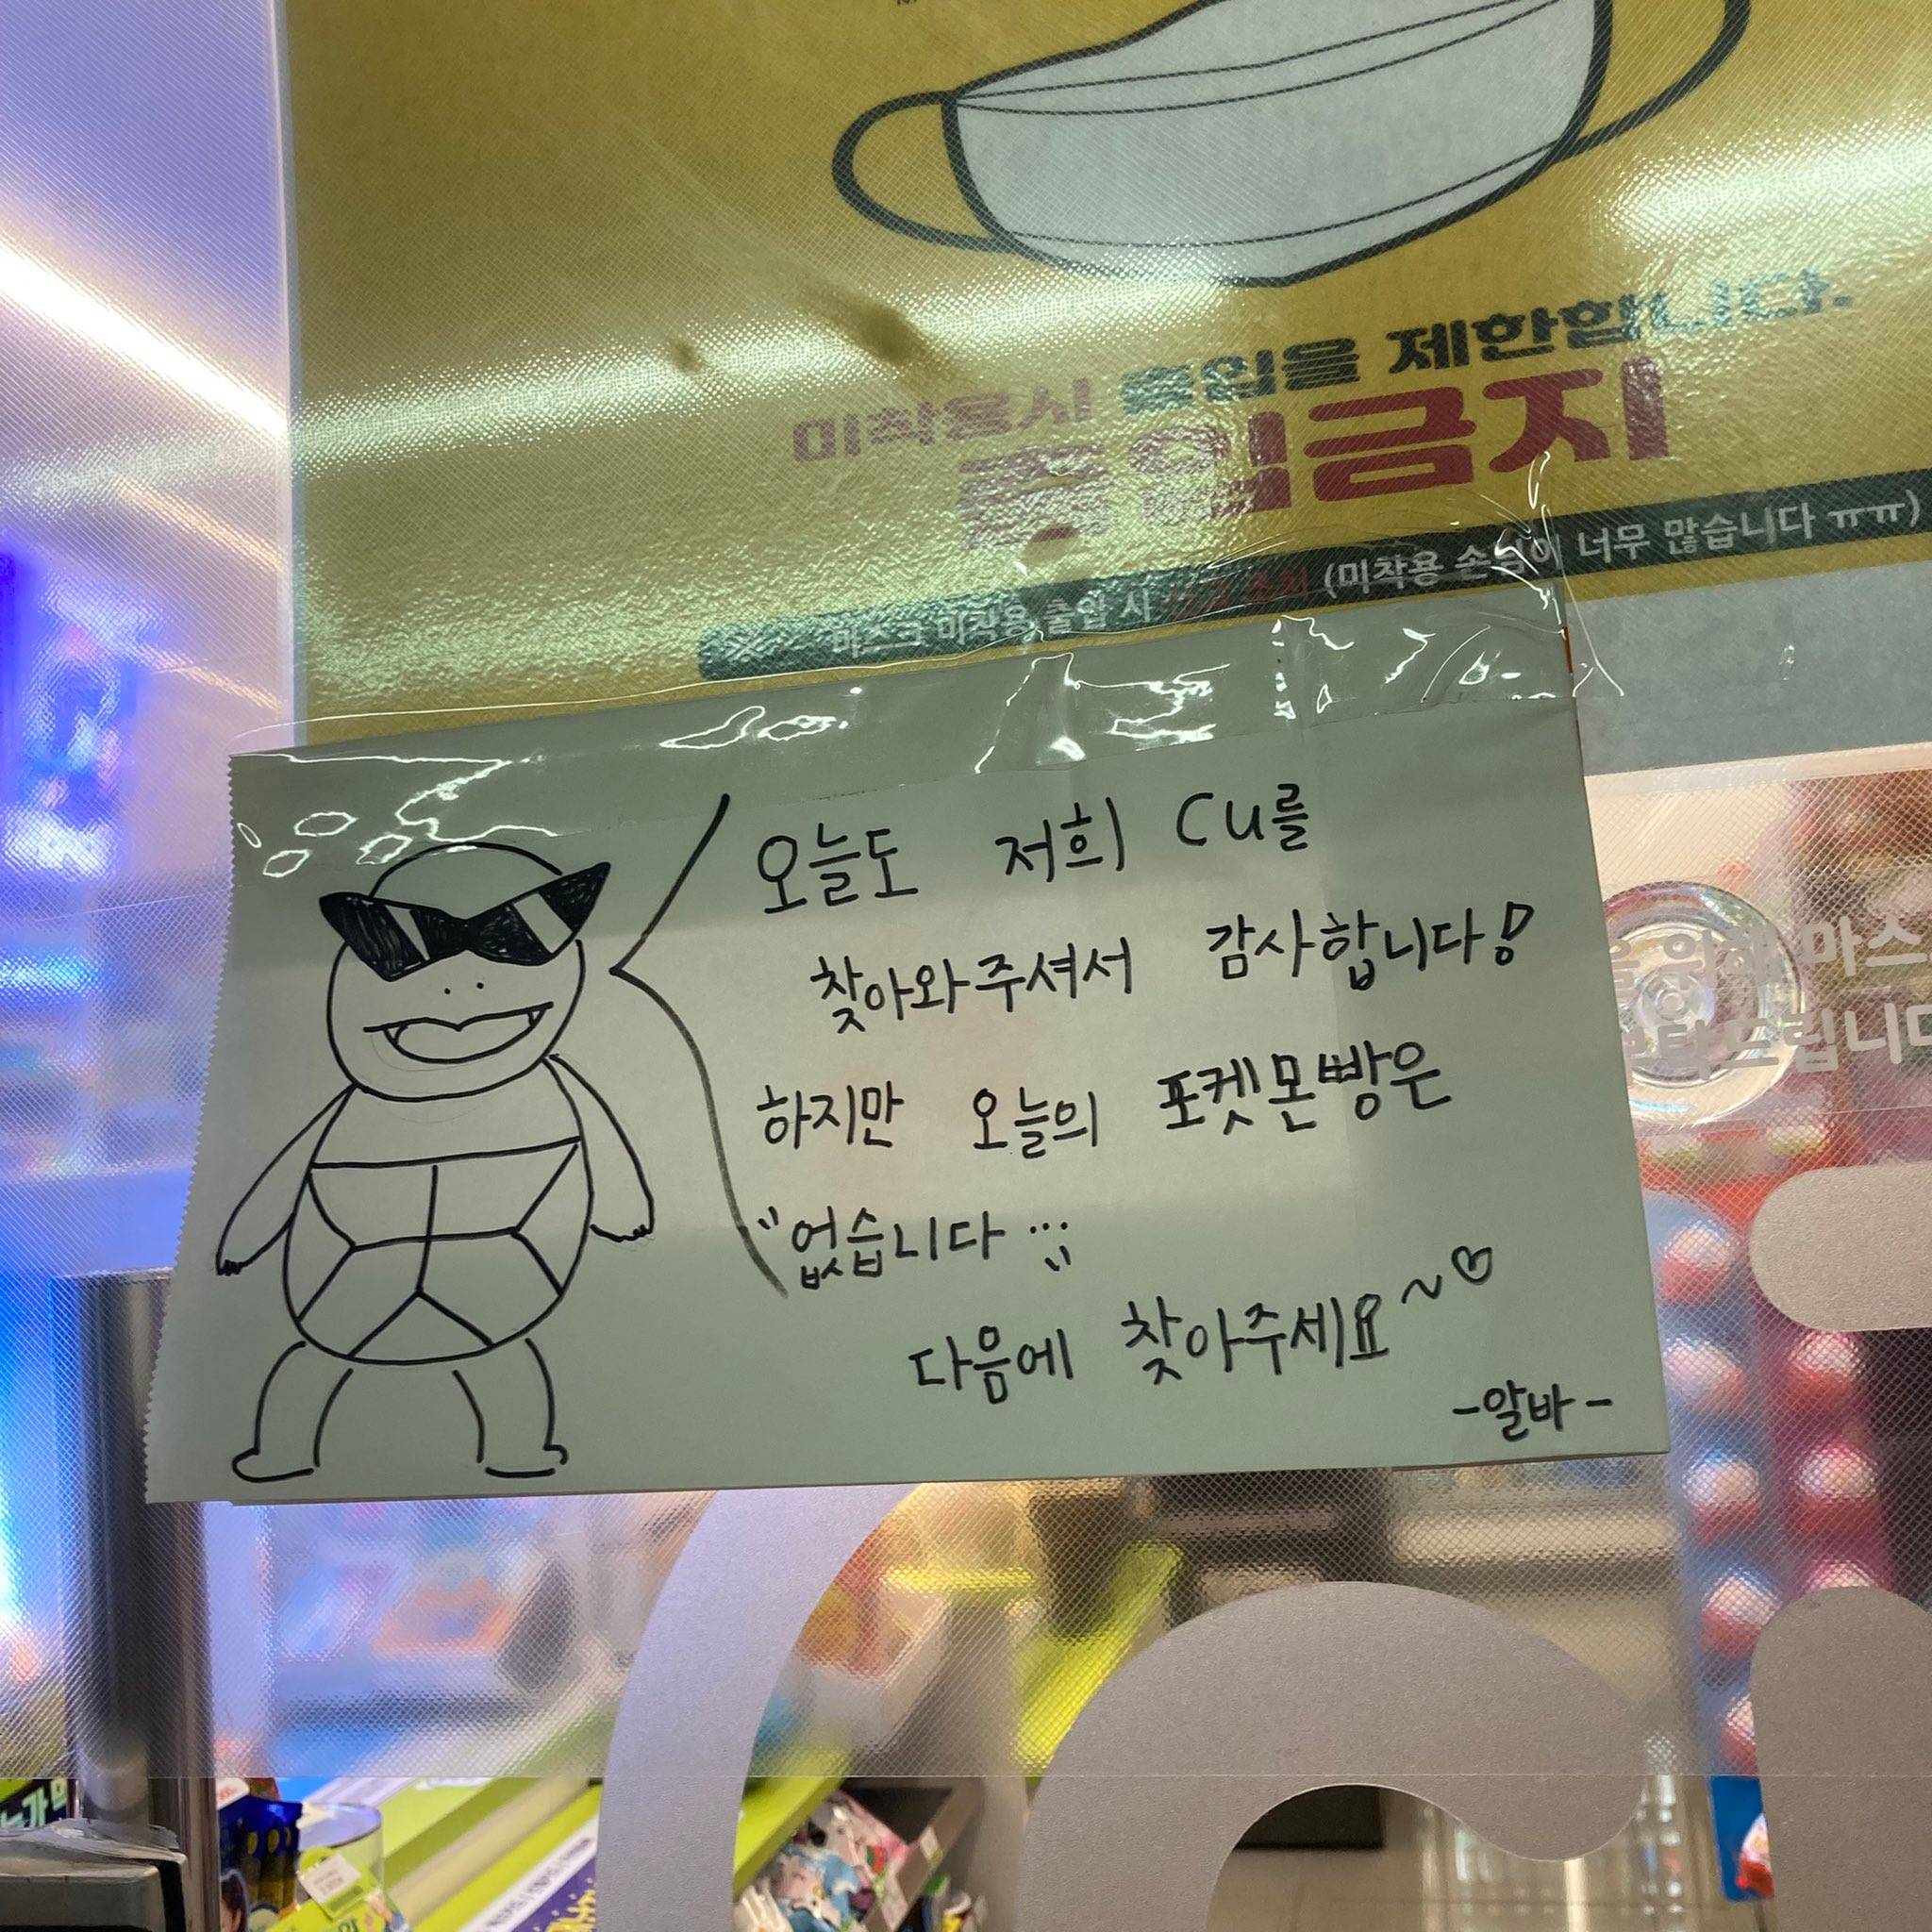 미착용시 출입을 제한합니다.
출입금지
마스크 미착용 출입 시 신고 조치 (미착용 손님이 너무 많습니다 ㅠㅠ)
오늘도 저희 CU를
찾아와주셔서 감사합니다!
하지만 오늘의 포켓몬빵은
"없습니다 ...;;
다음에 찾아주세요~♡
-알바-
위해 마스
드립니다